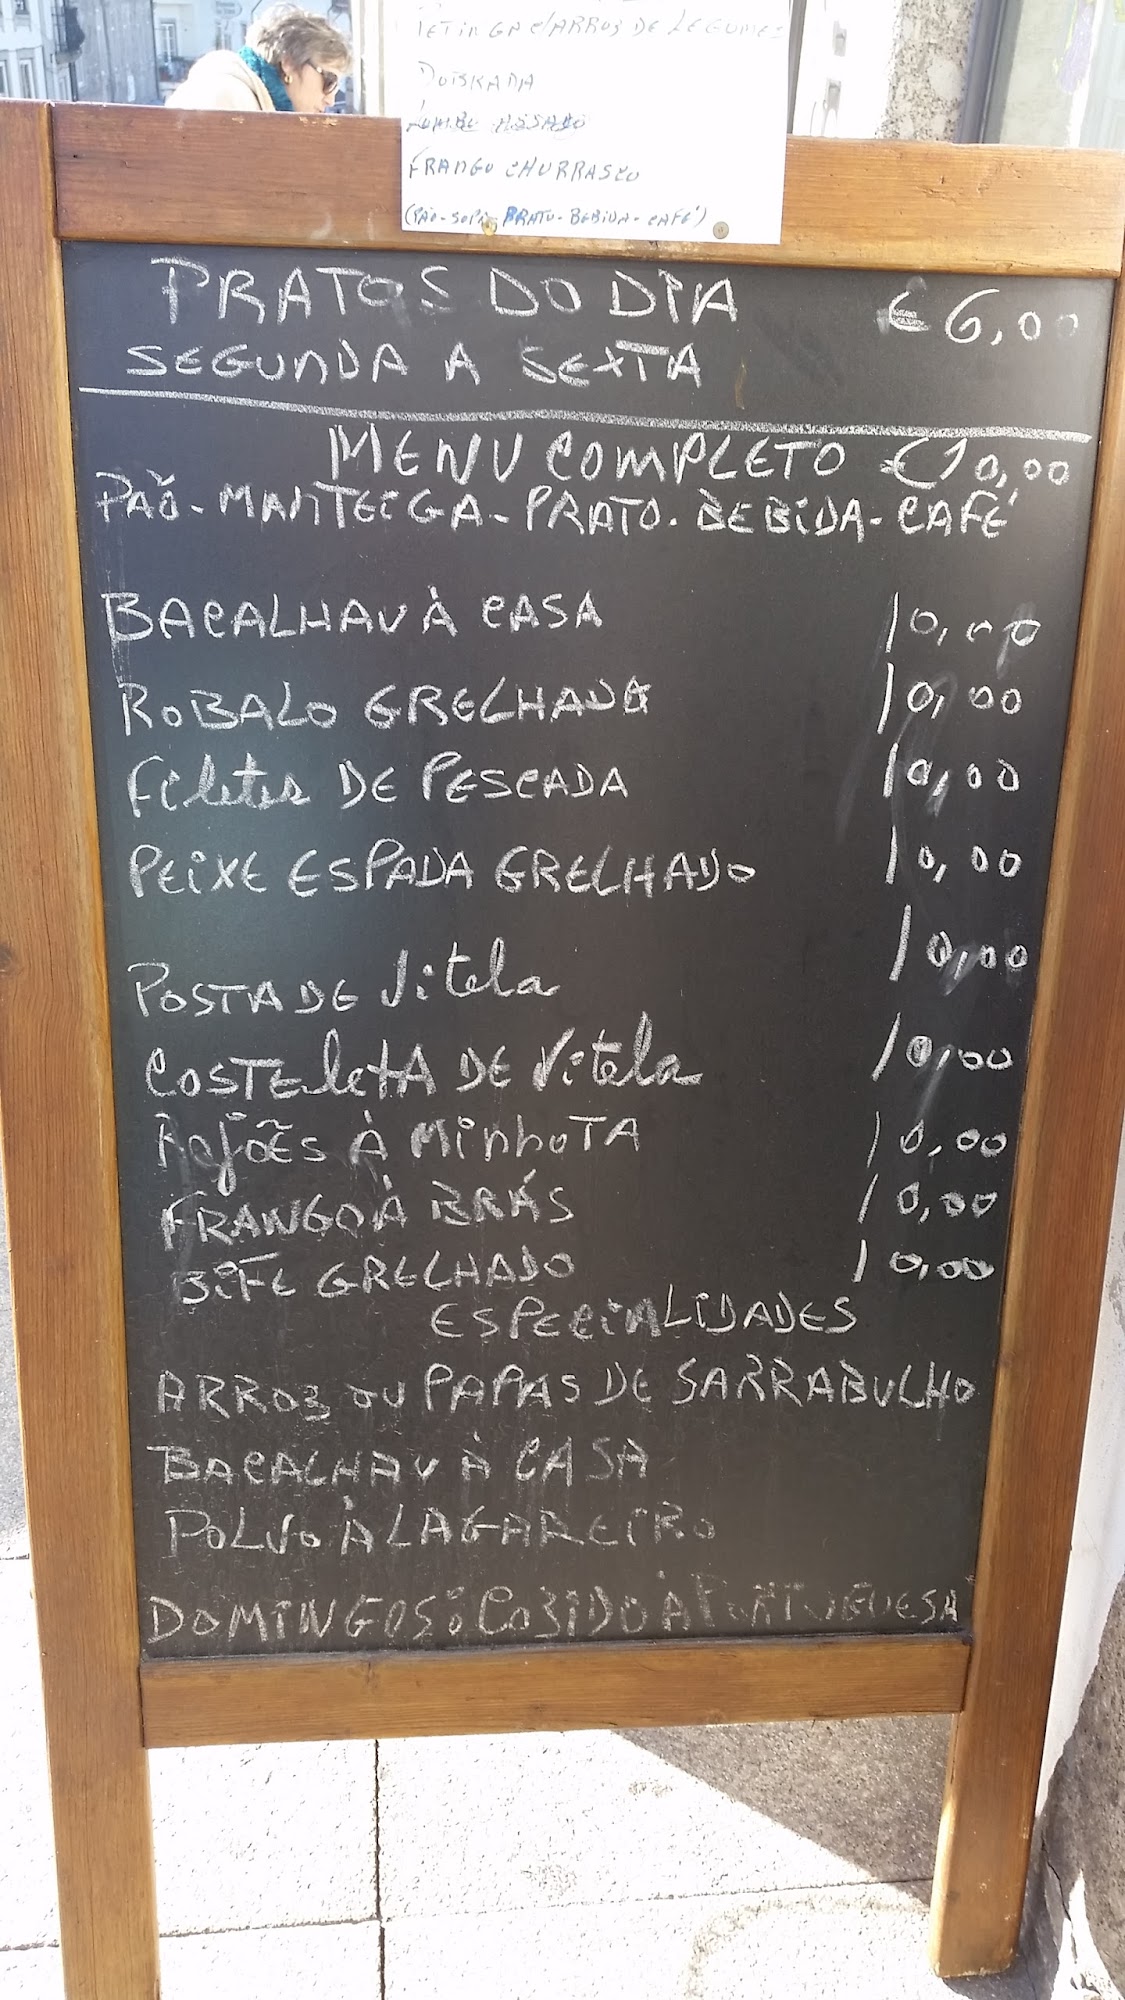 PETINGA C/ARROZ DE LEGUMES
LOMBO ASSADO
FRANGO CHURRASCO
(PÃO-SOPA-PRATO-BEBIDA-CAFÉ)
PRATOS DO DIA €6,00
SEGUNDA A SEXTA
MENU COMPLETO €10,00
PÃO-MANTEIGA-PRATO-BEBIDA-CAFÉ
BACALHAU À CASA 10,00
ROBALO GRELHADO 10,00
Filetes DE PESCADA 10,00
PEIXE ESPADA GRELHADO 10,00
POSTA DE Vitela 10,00
COSTELETA DE Vitela 10,00
Rojões À MinhoTA 10,00
FRANGO À BRÁS 10,00
BIFE GRELHADO 10,00
ESPECIALIDADES
ARROZ OU PAPAS DE SARRABULHO
BACALHAU À CASA
POLVO À LAGAREIRO
DOMINGOS: COZIDO À PORTUGUESA